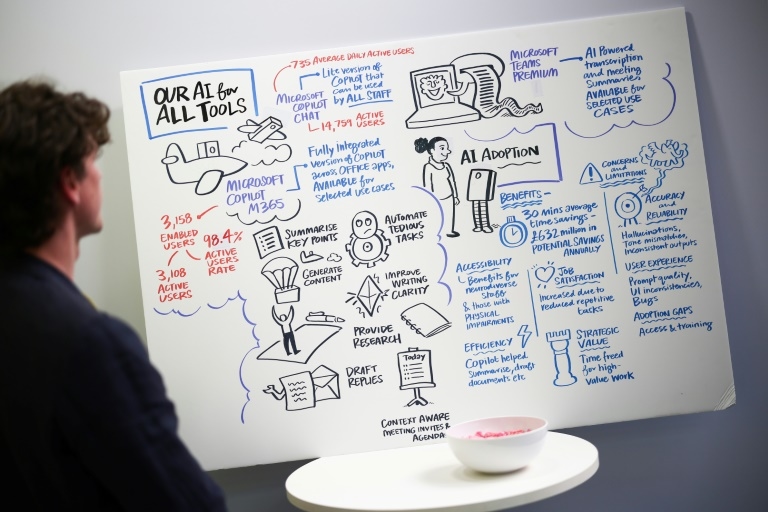 OUR AI for
ALL TOOLS
735 AVERAGE DAILY ACTIVE USERS
MICROSOFT
COPILOT
CHAT
Lite version of
COPILOT that
can be used
by ALL STAFF
14,759 ACTIVE
USERS
MICROSOFT
COPILOT
M365
Fully integrated
version of COPILOT
across OFFICE apps,
AVAILABLE for
selected use cases
3,158
ENABLED
USERS
98.4%
ACTIVE
USERS
RATE
3,108
ACTIVE
USERS
SUMMARISE
KEY POINTS
AUTOMATE
TEDIOUS
TASKS
GENERATE
CONTENT
IMPROVE
WRITING
CLARITY
PROVIDE
RESEARCH
DRAFT
REPLIES
Today
CONTEXT AWARE
MEETING INVITES &
AGENDA
MICROSOFT
TEAMS
PREMIUM
AI Powered
transcription
and meeting
summaries,
AVAILABLE for
SELECTED USE
CASES
AI ADOPTION
BENEFITS
30 mins average
time savings -
£632 million in
POTENTIAL SAVINGS
ANNUALLY
ACCESSIBILITY
Benefits for
neurodiverse
staff
& those with
PHYSICAL
IMPAIRMENTS
JOB
SATISFACTION
Increased due to
reduced repetitive
tasks
EFFICIENCY
Copilot helped
summarise, draft
documents etc
STRATEGIC
VALUE
Time freed
for high-
value work
CONCERNS
and
LIMITATIONS
ACCURACY
and
RELIABILITY
Hallucinations,
Tone mismatches,
inconsistent outputs
USER EXPERIENCE
Prompt quality,
UI inconsistencies,
Bugs
ADOPTION GAPS
Access & training